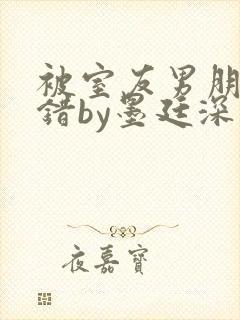 被室友男朋
错by墨廷深
夜嘉宝